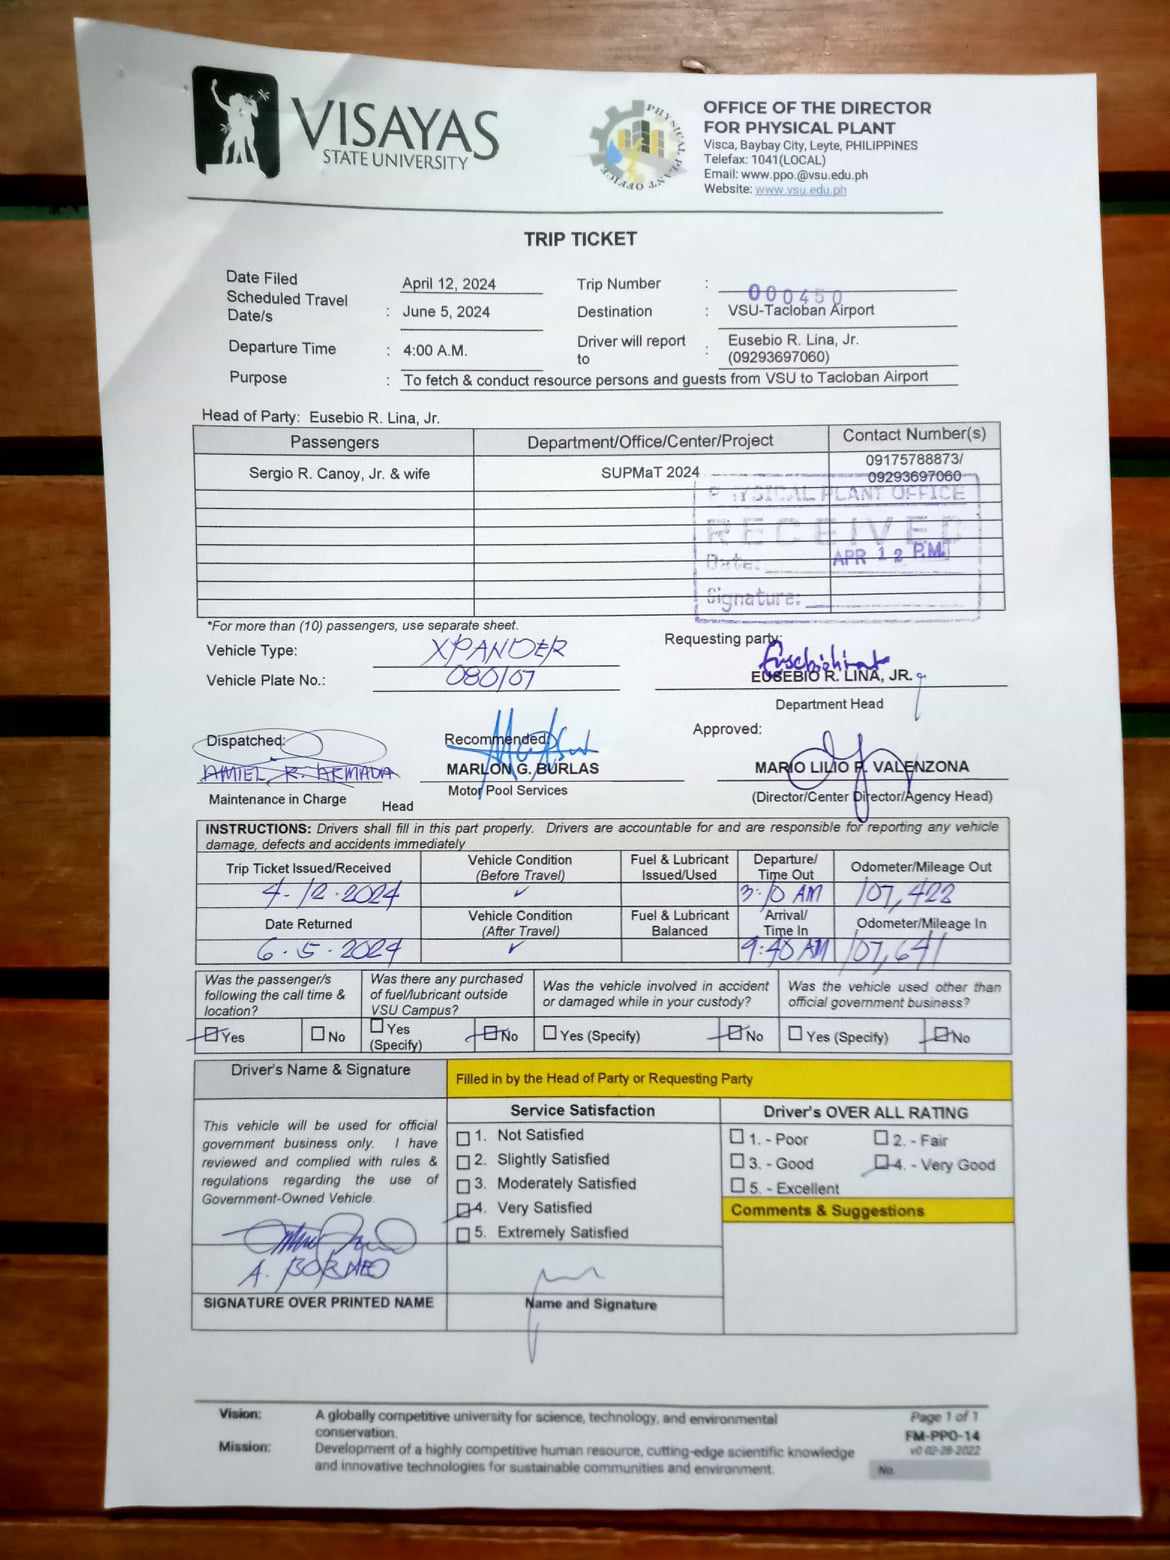 VISAYAS
STATE UNIVERSITY
PHYSICAL PLANT OFFICE
OFFICE OF THE DIRECTOR
FOR PHYSICAL PLANT
Visca, Baybay City, Leyte, PHILIPPINES
Telefax: 1041(LOCAL)
Email: www.ppo.@vsu.edu.ph
Website: www.vsu.edu.ph
TRIP TICKET
Date Filed April 12, 2024 Trip Number : 000450
Scheduled Travel Date/s : June 5, 2024 Destination : VSU-Tacloban Airport
Departure Time : 4:00 A.M. Driver will report to : Eusebio R. Lina, Jr. (09293697060)
Purpose : To fetch & conduct resource persons and guests from VSU to Tacloban Airport
Head of Party: Eusebio R. Lina, Jr.
Passengers Department/Office/Center/Project Contact Number(s)
Sergio R. Canoy, Jr. & wife SUPMaT 2024 09175788873/ 09293697060
PHYSICAL PLANT OFFICE
RECEIVED
Date: APR 12 P.M.
Signature:
*For more than (10) passengers, use separate sheet.
Vehicle Type: XPANDER Requesting party:
Vehicle Plate No.: 080107 EUSEBIO R. LINA, JR.
Department Head
Dispatched: Recommended: Approved:
AMIEL R. ARMADA MARLON G. BURLAS MARIO LILIO P. VALENZONA
Maintenance in Charge Head Motor Pool Services (Director/Center Director/Agency Head)
INSTRUCTIONS: Drivers shall fill in this part properly. Drivers are accountable for and are responsible for reporting any vehicle
damage, defects and accidents immediately
Trip Ticket Issued/Received Vehicle Condition (Before Travel) Fuel & Lubricant Issued/Used Departure/ Time Out Odometer/Mileage Out
4-12-2024 ✓ 3:10 AM 107,422
Date Returned Vehicle Condition (After Travel) Fuel & Lubricant Balanced Arrival/ Time In Odometer/Mileage In
6-5-2024 ✓ 9:40 AM 107,641
Was the passenger/s following the call time & location? Was there any purchased of fuel/lubricant outside VSU Campus? Was the vehicle involved in accident or damaged while in your custody? Was the vehicle used other than official government business?
Yes No Yes (Specify) No Yes (Specify) No Yes (Specify) No
Driver's Name & Signature Filled in by the Head of Party or Requesting Party
Service Satisfaction Driver's OVER ALL RATING
This vehicle will be used for official
government business only. I have
reviewed and complied with rules &
regulations regarding the use of
Government-Owned Vehicle.
1. Not Satisfied
2. Slightly Satisfied
3. Moderately Satisfied
4. Very Satisfied
5. Extremely Satisfied
1. - Poor 2. - Fair
3. - Good 4. - Very Good
5. - Excellent
Comments & Suggestions
A. BORNEO
SIGNATURE OVER PRINTED NAME Name and Signature
Vision: A globally competitive university for science, technology, and environmental
conservation.
Mission: Development of a highly competitive human resource, cutting-edge scientific knowledge
and innovative technologies for sustainable communities and environment.
Page 1 of 1
FM-PPO-14
v0 02-28-2022
No.